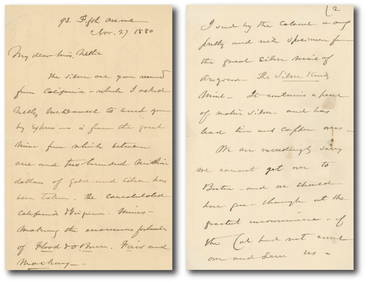 92 Fifth Avenue
Nov. 27 1880
My dear Miss Nettie
The silver ore you send
from California - which I asked
to send you
by Express - is from the great
mine from which between
one and two hundred million
dollars of gold and silver has
been taken - the Consolidated
California & Virginia Mines -
making the enormous fortunes
of Flood & O'Brien, Fair and
Mackay.
(2
I send by the Colonel a very
pretty and rich specimen from
the great silver mine of
Arizona - The Silver King
Mine - It contains a piece
of native silver and has
lead too and copper ores -
We are exceedingly sorry
we cannot get on to
Boston - and we should
have gone - though at the
greatest inconvenience - if
the Col had not
over and us -